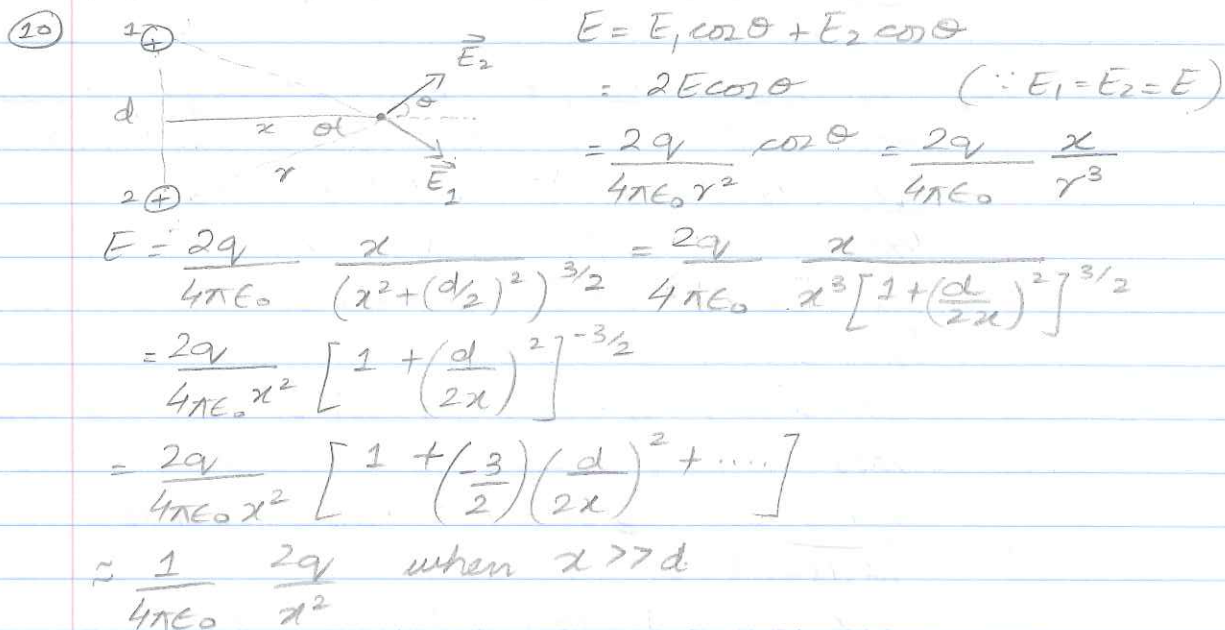 10
1 +
2 +
d
x
θ
r
E⃗₂
θ
E⃗₁
E = E₁ cosθ + E₂ cosθ
= 2E cosθ (∵ E₁ = E₂ = E)
= 2q/4πε₀r² cosθ = 2q/4πε₀ x/r³
E = 2q/4πε₀ x/(x²+(d/2)²)^3/2 = 2q/4πε₀ x/x³[1+(d/2x)²]^3/2
= 2q/4πε₀x² [1 + (d/2x)²]^-3/2
= 2q/4πε₀x² [1 + (-3/2)(d/2x)² + ....]
≈ 1/4πε₀ 2q/x² when x >> d